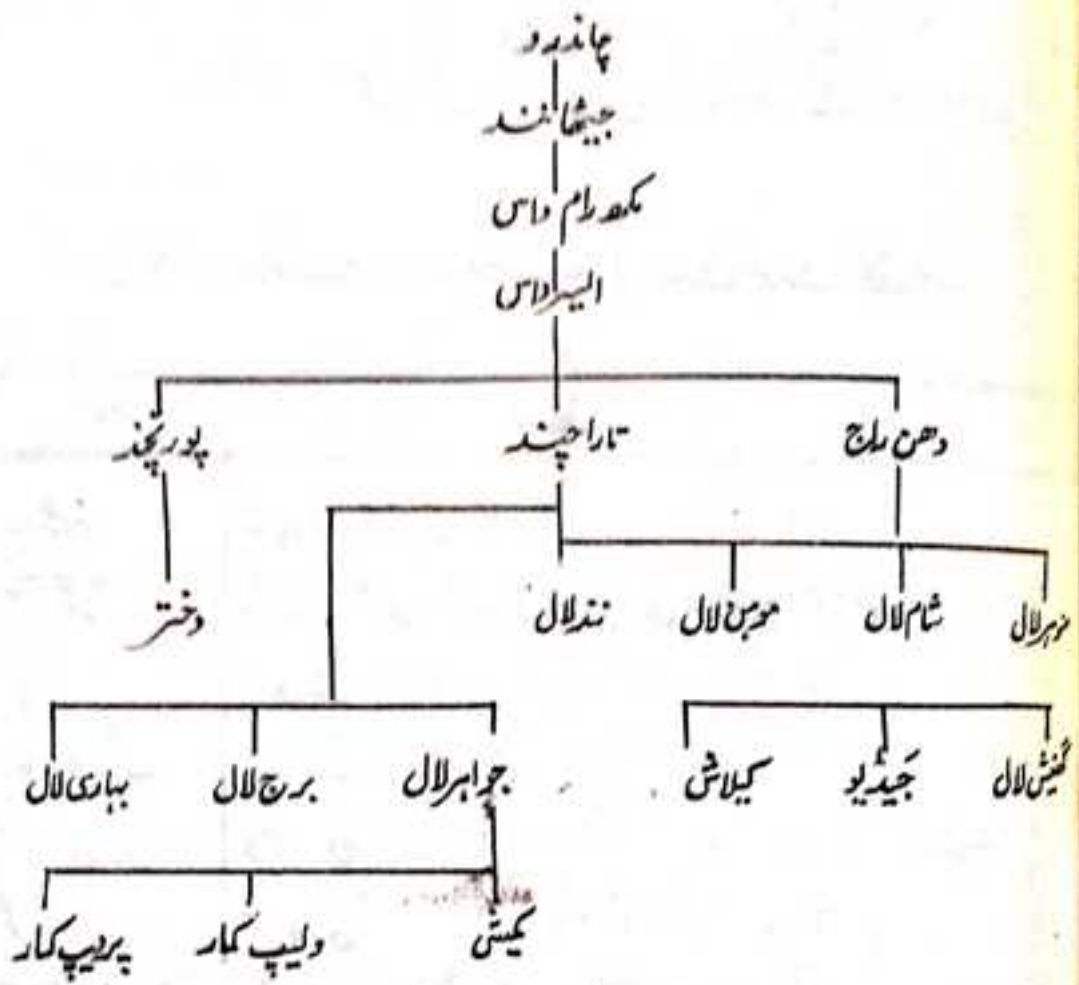 چاندرو
جیٹھانند
مکھ رام داس
الیسر داس
دھن راج تارا چند پورنچند
منوہر لال شام لال موہن لال نند لال دختر
گنیش لال جیدیو کیلاش جواہر لال برج لال بہاری لال
دلیپ کمار پردیپ کمار